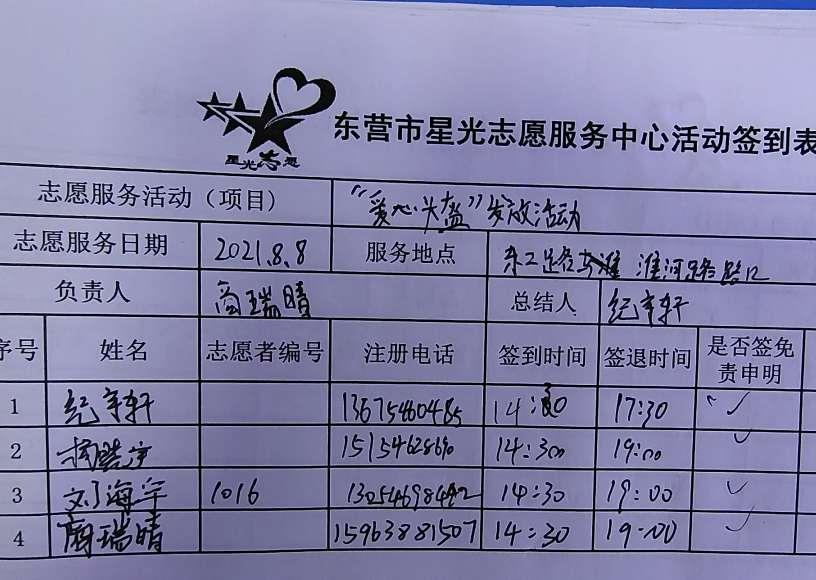 星光志愿
东营市星光志愿服务中心活动签到表
志愿服务活动（项目） “爱心头盔”发放活动
志愿服务日期 2021.8.8 服务地点 东二路与淮河路路口
负责人 商瑞晴 总结人 纪宇轩
序号 姓名 志愿者编号 注册电话 签到时间 签退时间 是否签免责申明
1 纪宇轩 13675460485 14:30 17:30 ✓
2 14:30 19:00 ✓
3 刘海军 1016 14:30 19:00 ✓
4 商瑞晴 15963881507 14:30 19:00 ✓